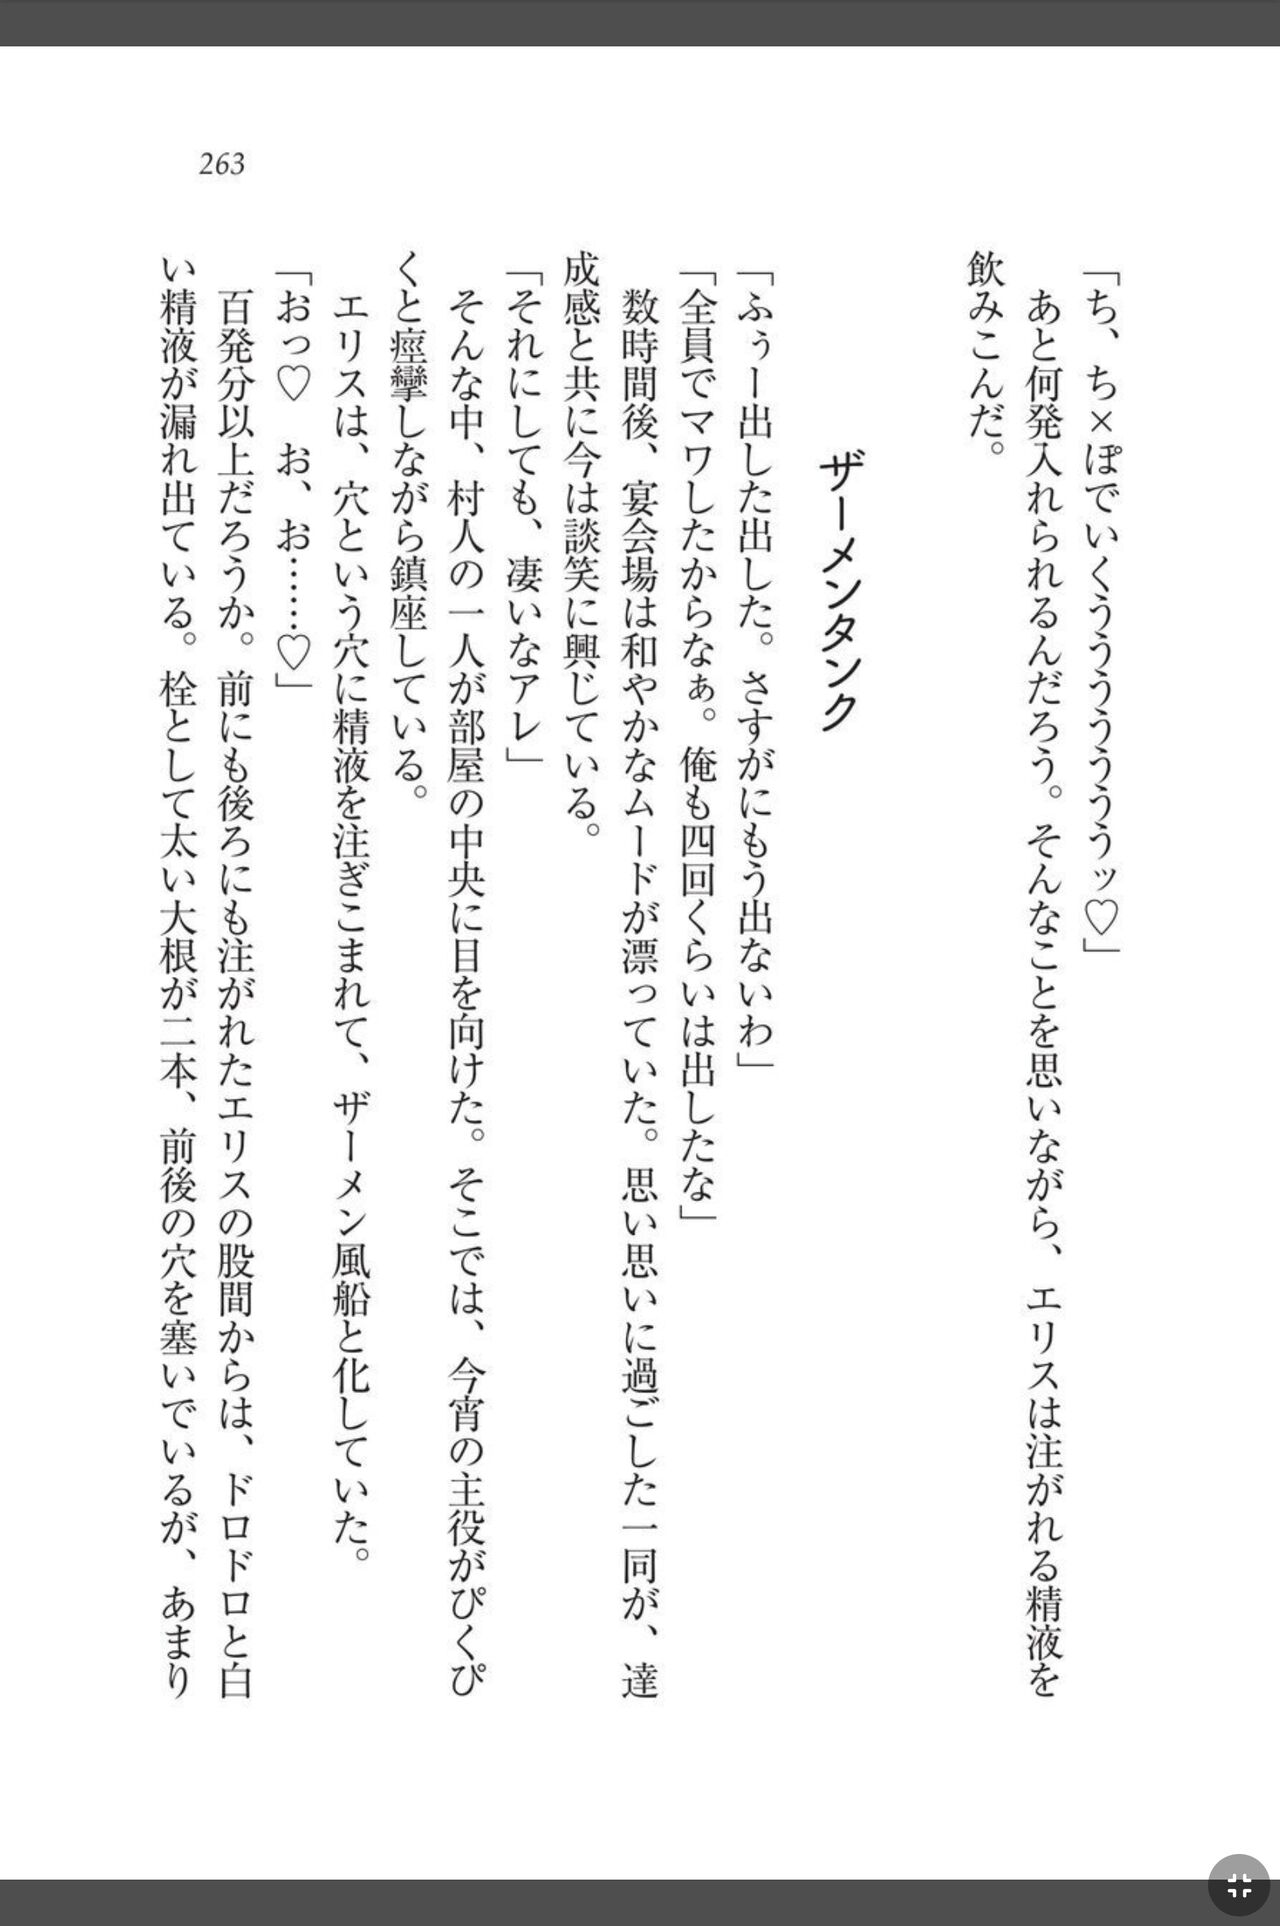 263
「ち、ち×ぽでいくうううううううッ♡」
あと何発入れられるんだろう。そんなことを思いながら、エリスは注がれる精液を
飲みこんだ。
ザーメンタンク
「ふぅー出した出した。さすがにもう出ないわ」
「全員でマワしたからなぁ。俺も四回くらいは出したな」
数時間後、宴会場は和やかなムードが漂っていた。思い思いに過ごした一同が、達
成感と共に今は談笑に興じている。
「それにしても、凄いなアレ」
そんな中、村人の一人が部屋の中央に目を向けた。そこでは、今宵の主役がぴくぴ
くと痙攣しながら鎮座している。
エリスは、穴という穴に精液を注ぎこまれて、ザーメン風船と化していた。
「おっ♡　お、お……♡」
百発分以上だろうか。前にも後ろにも注がれたエリスの股間からは、ドロドロと白
い精液が漏れ出ている。栓として太い大根が二本、前後の穴を塞いでいるが、あまり